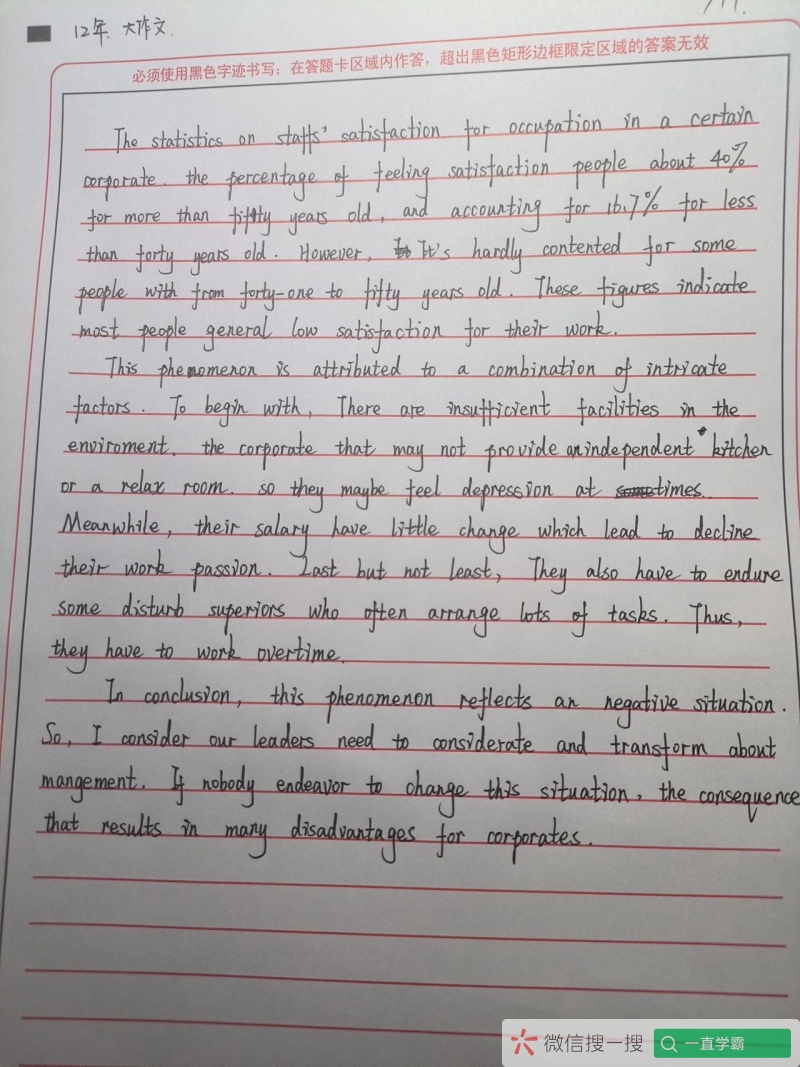 12年、大作文.
必须使用黑色字迹书写：在答题卡区域内作答，超出黑色矩形边框限定区域的答案无效
The statistics on staffs' satisfaction for occupation in a certain
corporate. the percentage of feeling satisfaction people about 40%
for more than fifty years old, and accounting for 16.7% for less
than forty years old. However, It's hardly contented for some
people with from forty-one to fifty years old. These figures indicate
most people general low satisfaction for their work.
This phenomenon is attributed to a combination of intricate
factors. To begin with, There are insufficient facilities in the
enviroment. the corporate that may not provide an independent kitchen
or a relax room. so they maybe feel depression at times.
Meanwhile, their salary have little change which lead to decline
their work passion. Last but not least, They also have to endure
some disturb superiors who often arrange lots of tasks. Thus,
they have to work overtime.
In conclusion, this phenomenon reflects an negative situation.
So, I consider our leaders need to considerate and transform about
mangement. If nobody endeavor to change this situation, the consequence
that results in many disadvantages for corporates.
微信搜一搜
一直学霸